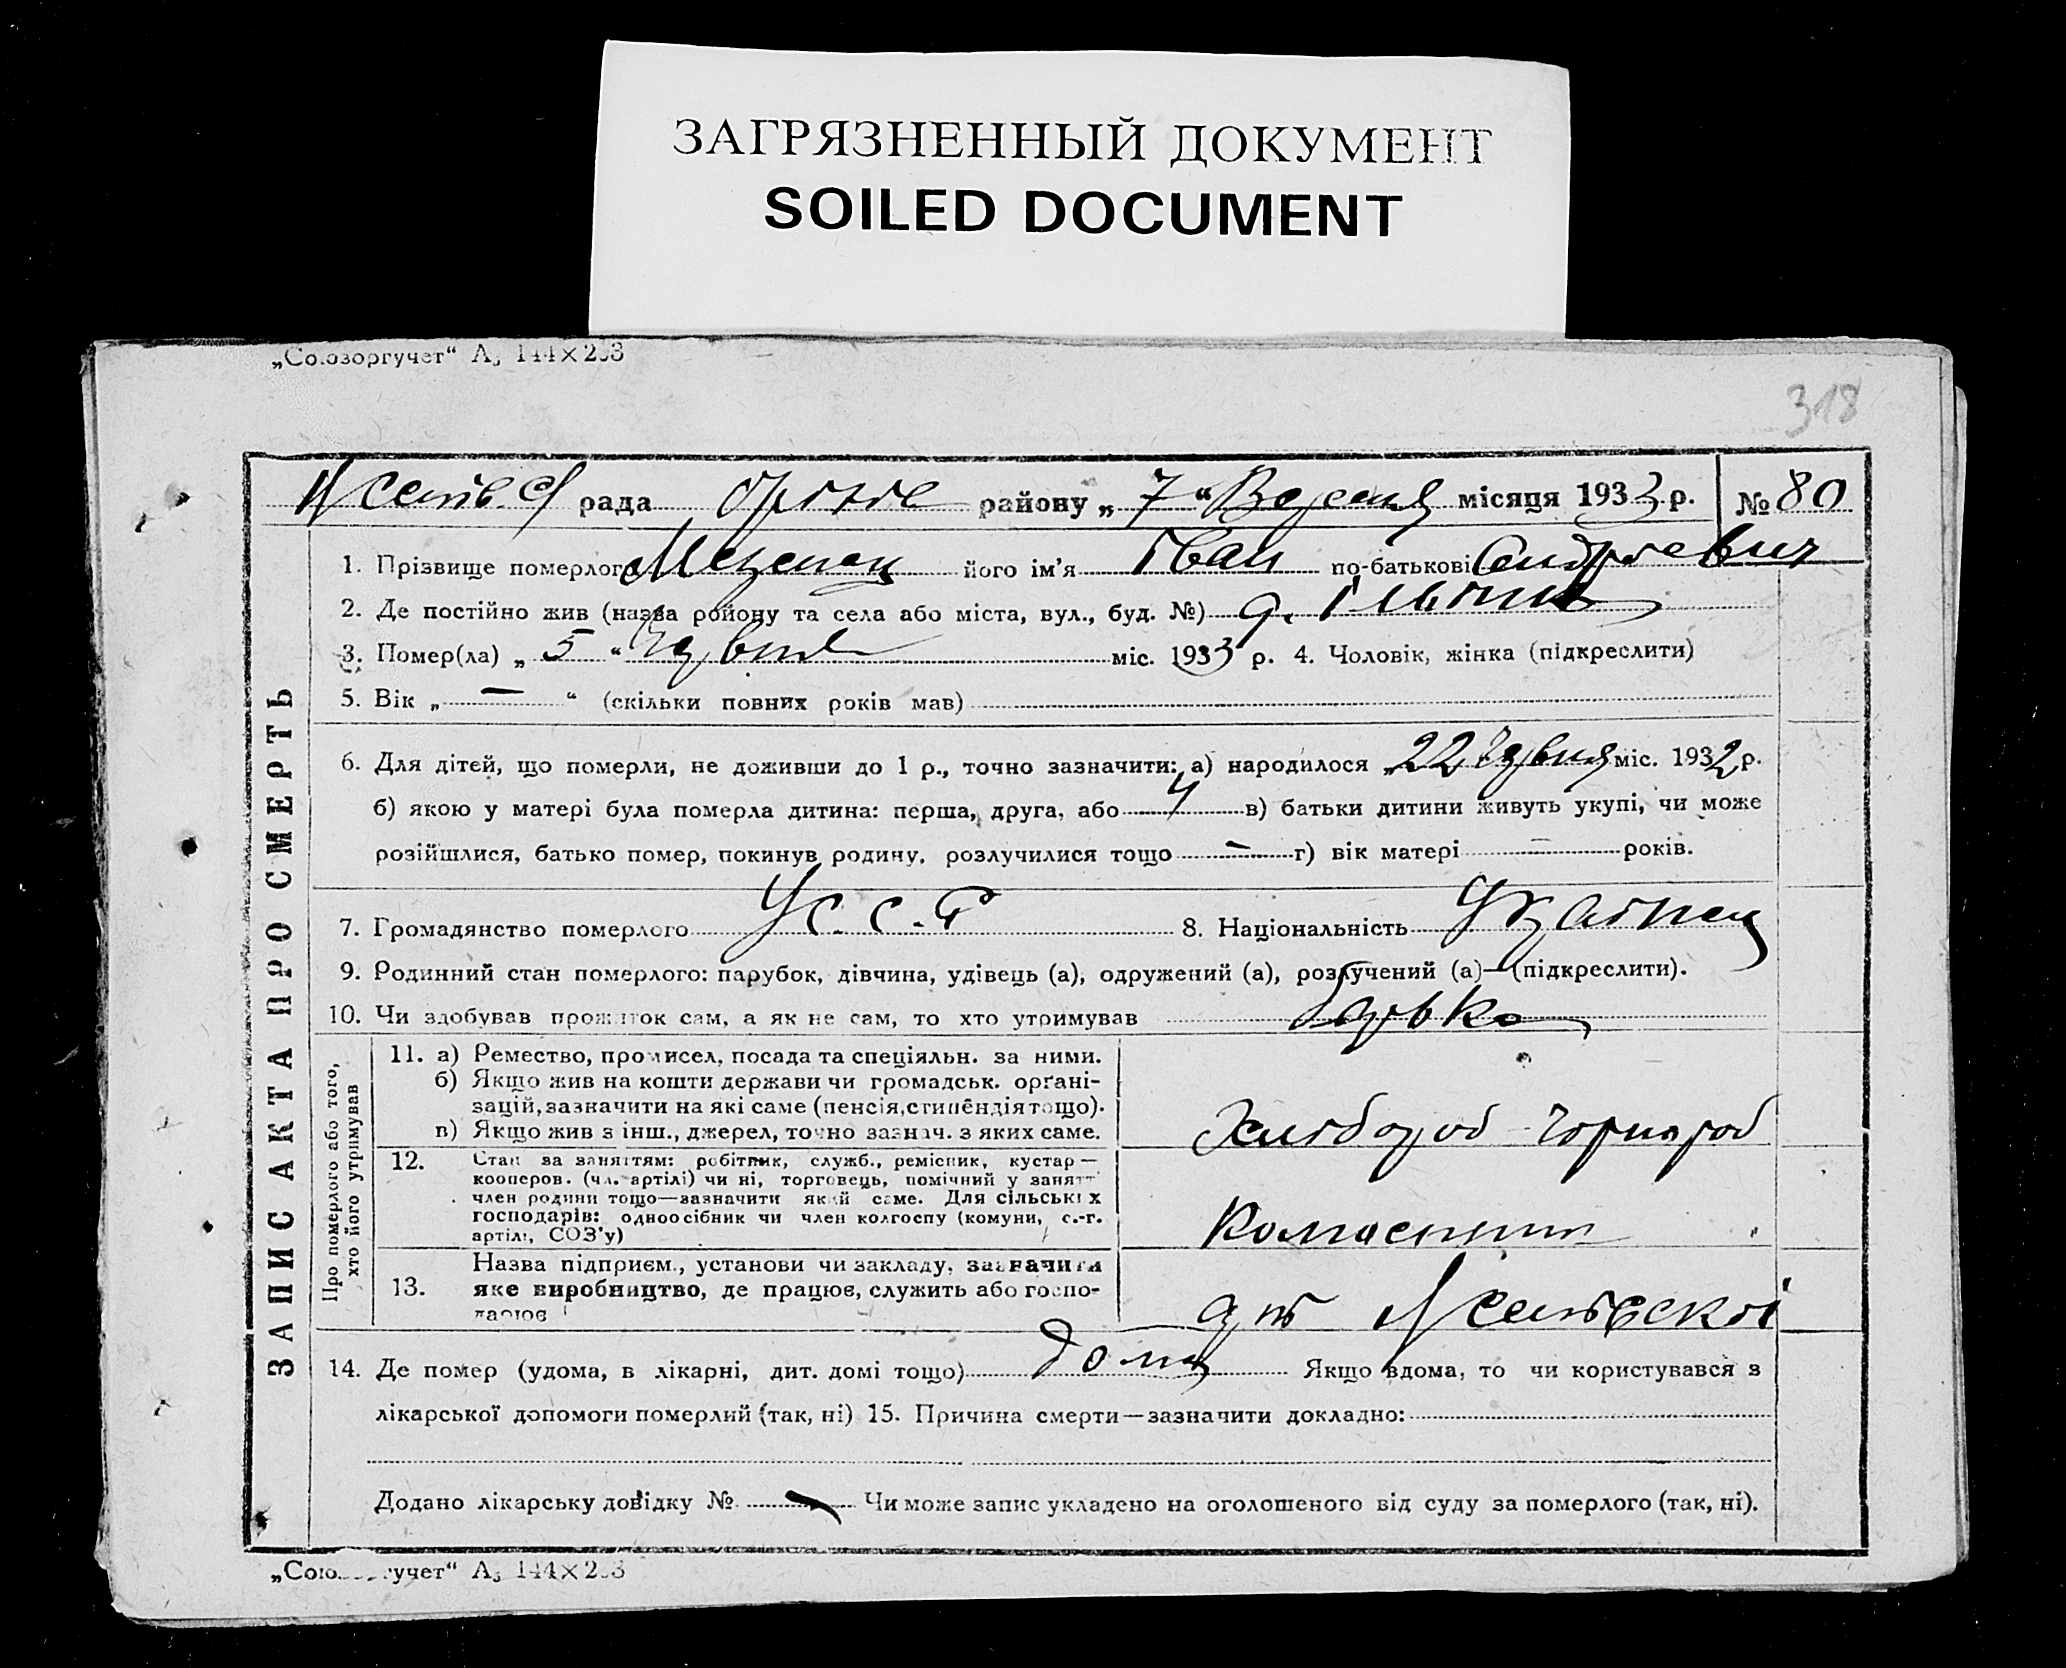 ЗАГРЯЗНЕННЫЙ ДОКУМЕНТ
SOILED DOCUMENT
„Союзоргучет“ А5 144×203
318
рада району „ 7 “ Вересня місяця 1933 р. № 80
ЗАПИС АКТА ПРО СМЕРТЬ
1. Прізвище померлого його ім'я Іван по-батькові Андрієвич
2. Де постійно жив (назва ройону та села або міста, вул., буд. №)
3. Помер(ла) „ 5 “ Червня міс. 1933 р. 4. Чоловік, жінка (підкреслити)
5. Вік „ — “ (скільки повних років мав)
6. Для дітей, що померли, не доживши до 1 р., точно зазначити: а) народилося „ 22 Червня міс. 1932 р.
б) якою у матері була померла дитина: перша, друга, або 4 в) батьки дитини живуть укупі, чи може
розійшлися, батько помер, покинув родину, розлучилися тощо — г) вік матері — років.
7. Громадянство померлого У.С.С.Р 8. Національність Українец
9. Родинний стан померлого: парубок, дівчина, удівець (а), одружений (а), розлучений (а)—(підкреслити).
10. Чи здобував прожиток сам, а як не сам, то хто утримував
Про померлого або того,
хто його утримував
11. а) Ремество, промисел, посада та спеціяльн. за ними.
б) Якщо жив на кошти держави чи громадськ. орґані-
зацій, зазначити на які саме (пенсія, стипендія тощо).
в) Якщо жив з інш., джерел, точно зазнач. з яких саме.
Хлібороб - чорнороб
12. Стан за заняттям: робітник, служб., ремісник, кустар—
кооперов. (чл. артілі) чи ні, торговець, помічний у занятт
член родини тощо—зазначити який саме. Для сільських
господарів: одноосібник чи член колгоспу (комуни, с.-г.
артілі, СОЗ'у)
13. Назва підприєм., установи чи закладу, зазначити
яке виробництво, де працює, служить або госпо-
дарює
14. Де помер (удома, в лікарні, дит. домі тощо) Дома Якщо вдома, то чи користувався з
лікарської допомоги померлий (так, ні) 15. Причина смерти—зазначити докладно:
Додано лікарську довідку № — Чи може запис укладено на оголошеного від суду за померлого (так, ні).
„Союзоргучет“ А5 144×203